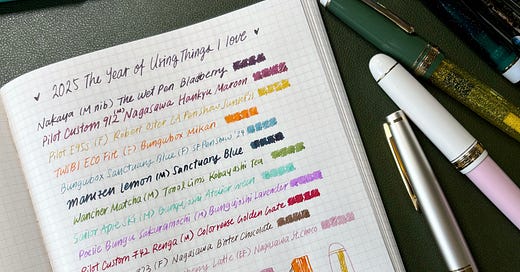 2025 The Year of Using Things I love
Nakaya (M nib) The Wet Pen Bladberry
Pilot Custom 912 Nagasawa Hankyu Maroon
Pilot E95S (F) Robert Oster LA Penshow Sunset
TWSBI ECO Fire (F) Bungubox Mikan
Bungubox Sanctuary Blue (F) SF Penshow '24
maruzen Lemon (M) Sanctuary Blue
Wancher Matcha (M) Tono&Lims Kobayashi Tea
Sailor (M)
Pocile Bungu Sakuramochi (M) Bungyoshi Lavender
Pilot Custom 742 Renga (M) Colorverse Golden Gate
(F) Nagasawa Bitter Chocolate
Latte (SE) Nagasawa St. Choco